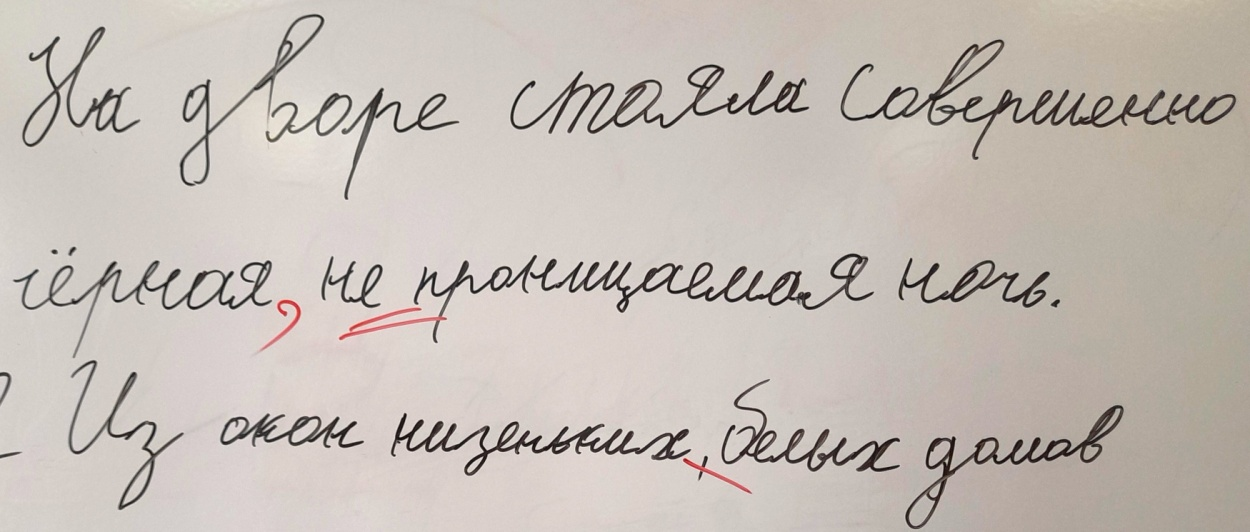 На дворе стояла совершенно
чёрная, не проницаемая ночь.
Из окон низеньких, белых домов